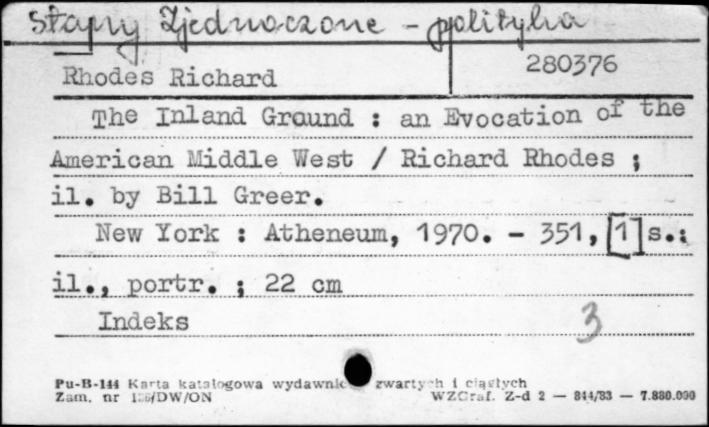 Stany Zjednoczone - polityka
280376
Rhodes Richard
The Inland Ground : an Evocation of the
American Middle West / Richard Rhodes ;
il. by Bill Greer.
New York : Atheneum, 1970. - 351, [1] s.:
il., portr. ; 22 cm
Indeks
3
Pu-B-144 Karta katalogowa zwartych i ciągłych
Zam. nr /DW/ON WZGraf. Z-d 2 — 844/83 — 7.880.000